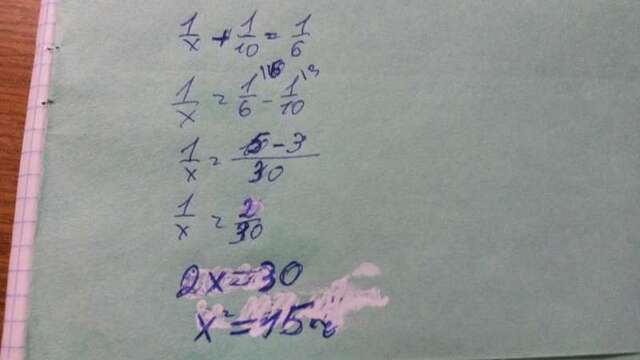 1/x + 1/10 = 1/6
1/x = 1/6 \5 - 1/10 \3
1/x = 5-3/30
1/x = 2/30
2x=30
x=15